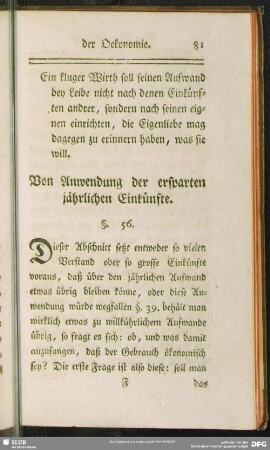 der Oekonomie. 81
Ein kluger Wirth soll seinen Aufwand
bey Leibe nicht nach denen Einkünf-
ten andrer, sondern nach seinen eig-
nen einrichten, die Eigenliebe mag
dagegen zu erinnern haben, was sie
will.
Von Anwendung der ersparten
jährlichen Einkünfte.
§. 56.
Dieser Abschnitt setzt entweder so vielen
Verstand oder so grosse Einkünfte
voraus, daß über den jährlichen Aufwand
etwas übrig bleiben könne, oder diese An-
wendung würde wegfallen §. 39. behält man
wirklich etwas zu willkührlichem Aufwande
übrig, so fragt es sich: ob, und was damit
anzufangen, daß der Gebrauch ökonomisch
sey? Die erste Frage ist also diese: soll man
F das
SLUB
DFG